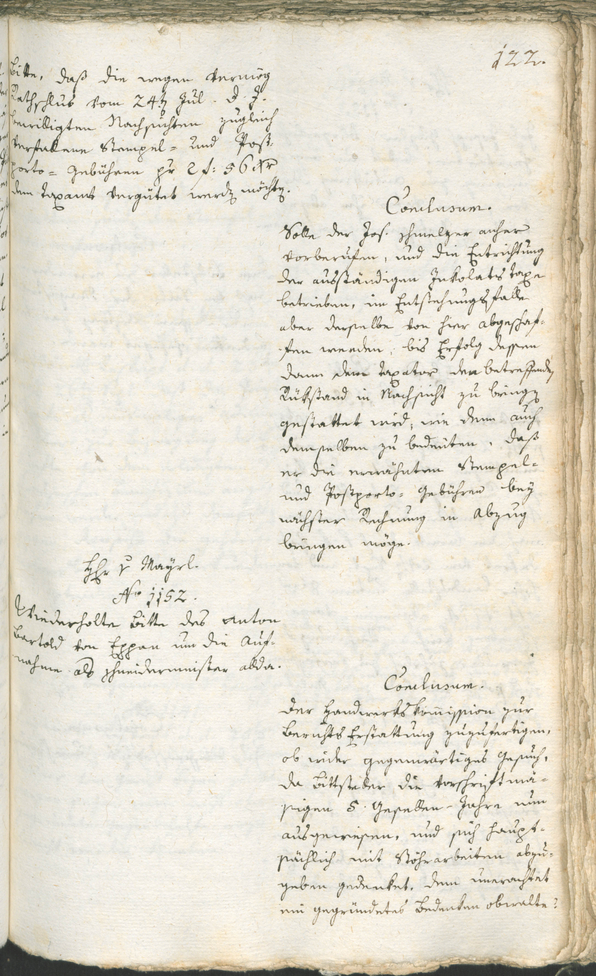 122.
Bitte, daß die wegen vermög
Rathschlus vom 24ten Jul. d. J.
bewilligten Nachsichten zugleich
verfallene Stempel- und Post
porto-Gebühren pr 2 f: 56 kr
dem Taxamt vergütet werden möchten.
Conclusum.
Solle der Jos: Schmelzer anher
vorberufen, und die Entrichtung
der ausständigen Inkolats Taxe
betrieben, im Entstehungsfalle
aber derselbe von hier abgeschaf-
fen werden, bis Erfolg dessen
dann dem Taxator den betreffenden
Rükstand in Nachsicht zu bringen
gestattet wird, wie dem auch
demselben zu bedeuten, daß
er die erwähnten Stempel-
und Postporto-Gebühren bey
nächster Rechnung in Abzug
bringen möge.
Hr v Mayrl.
No 1152.
Wiederholte Bitte des Anton
Bartold von Eppan um die Auf-
nahme als Schneidermeister alda.
Conclusum.
Der Handwerkskommission zur
Berichts Erstattung zuzufertigen,
ob wider gegenwärtiges Gesuch,
da Bittsteller die vorschriftmä-
sigen 5 Gesellen-Jahre nun
ausgewiesen, und sich haupt-
sächlich mit Störarbeiten abzu-
geben gedenket, dem unerachtet
ein gegründetes Bedenken obwalte?